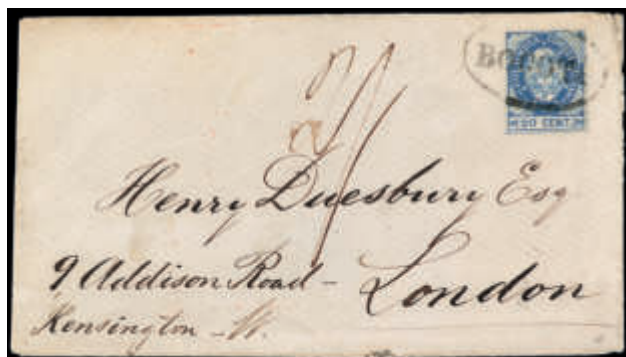 BOGOTA
20 CENT.
2/
Henry Duesbury Esq
9 Addison Road -
London
Kensington - W.